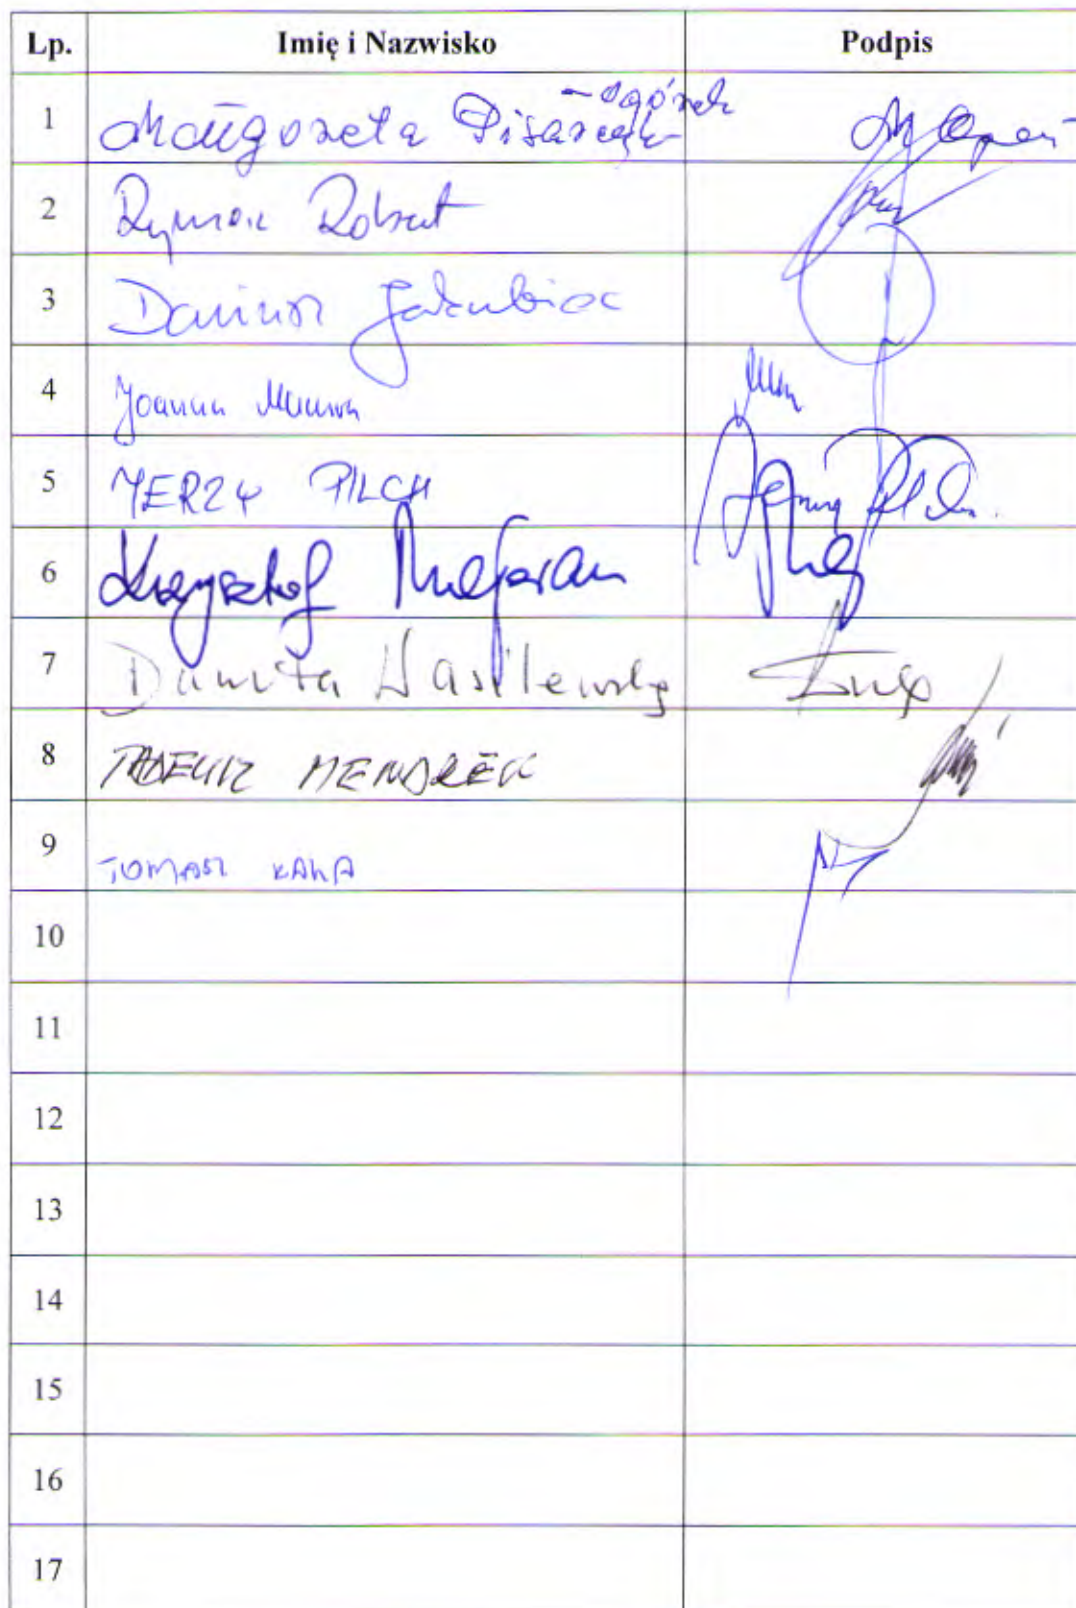 Lp. Imię i Nazwisko Podpis
1 Małgorzata Pisarczyk -Ogórek
2 Rymon Robert
3 Dariusz Jakubiec
4 Joanna
5 JERZY PILCH Jerzy Pilch
6 Krzysztof
7 Danuta Wasilewska
8 TADEUSZ MENDREK
9 TOMASZ KAŁA
10
11
12
13
14
15
16
17